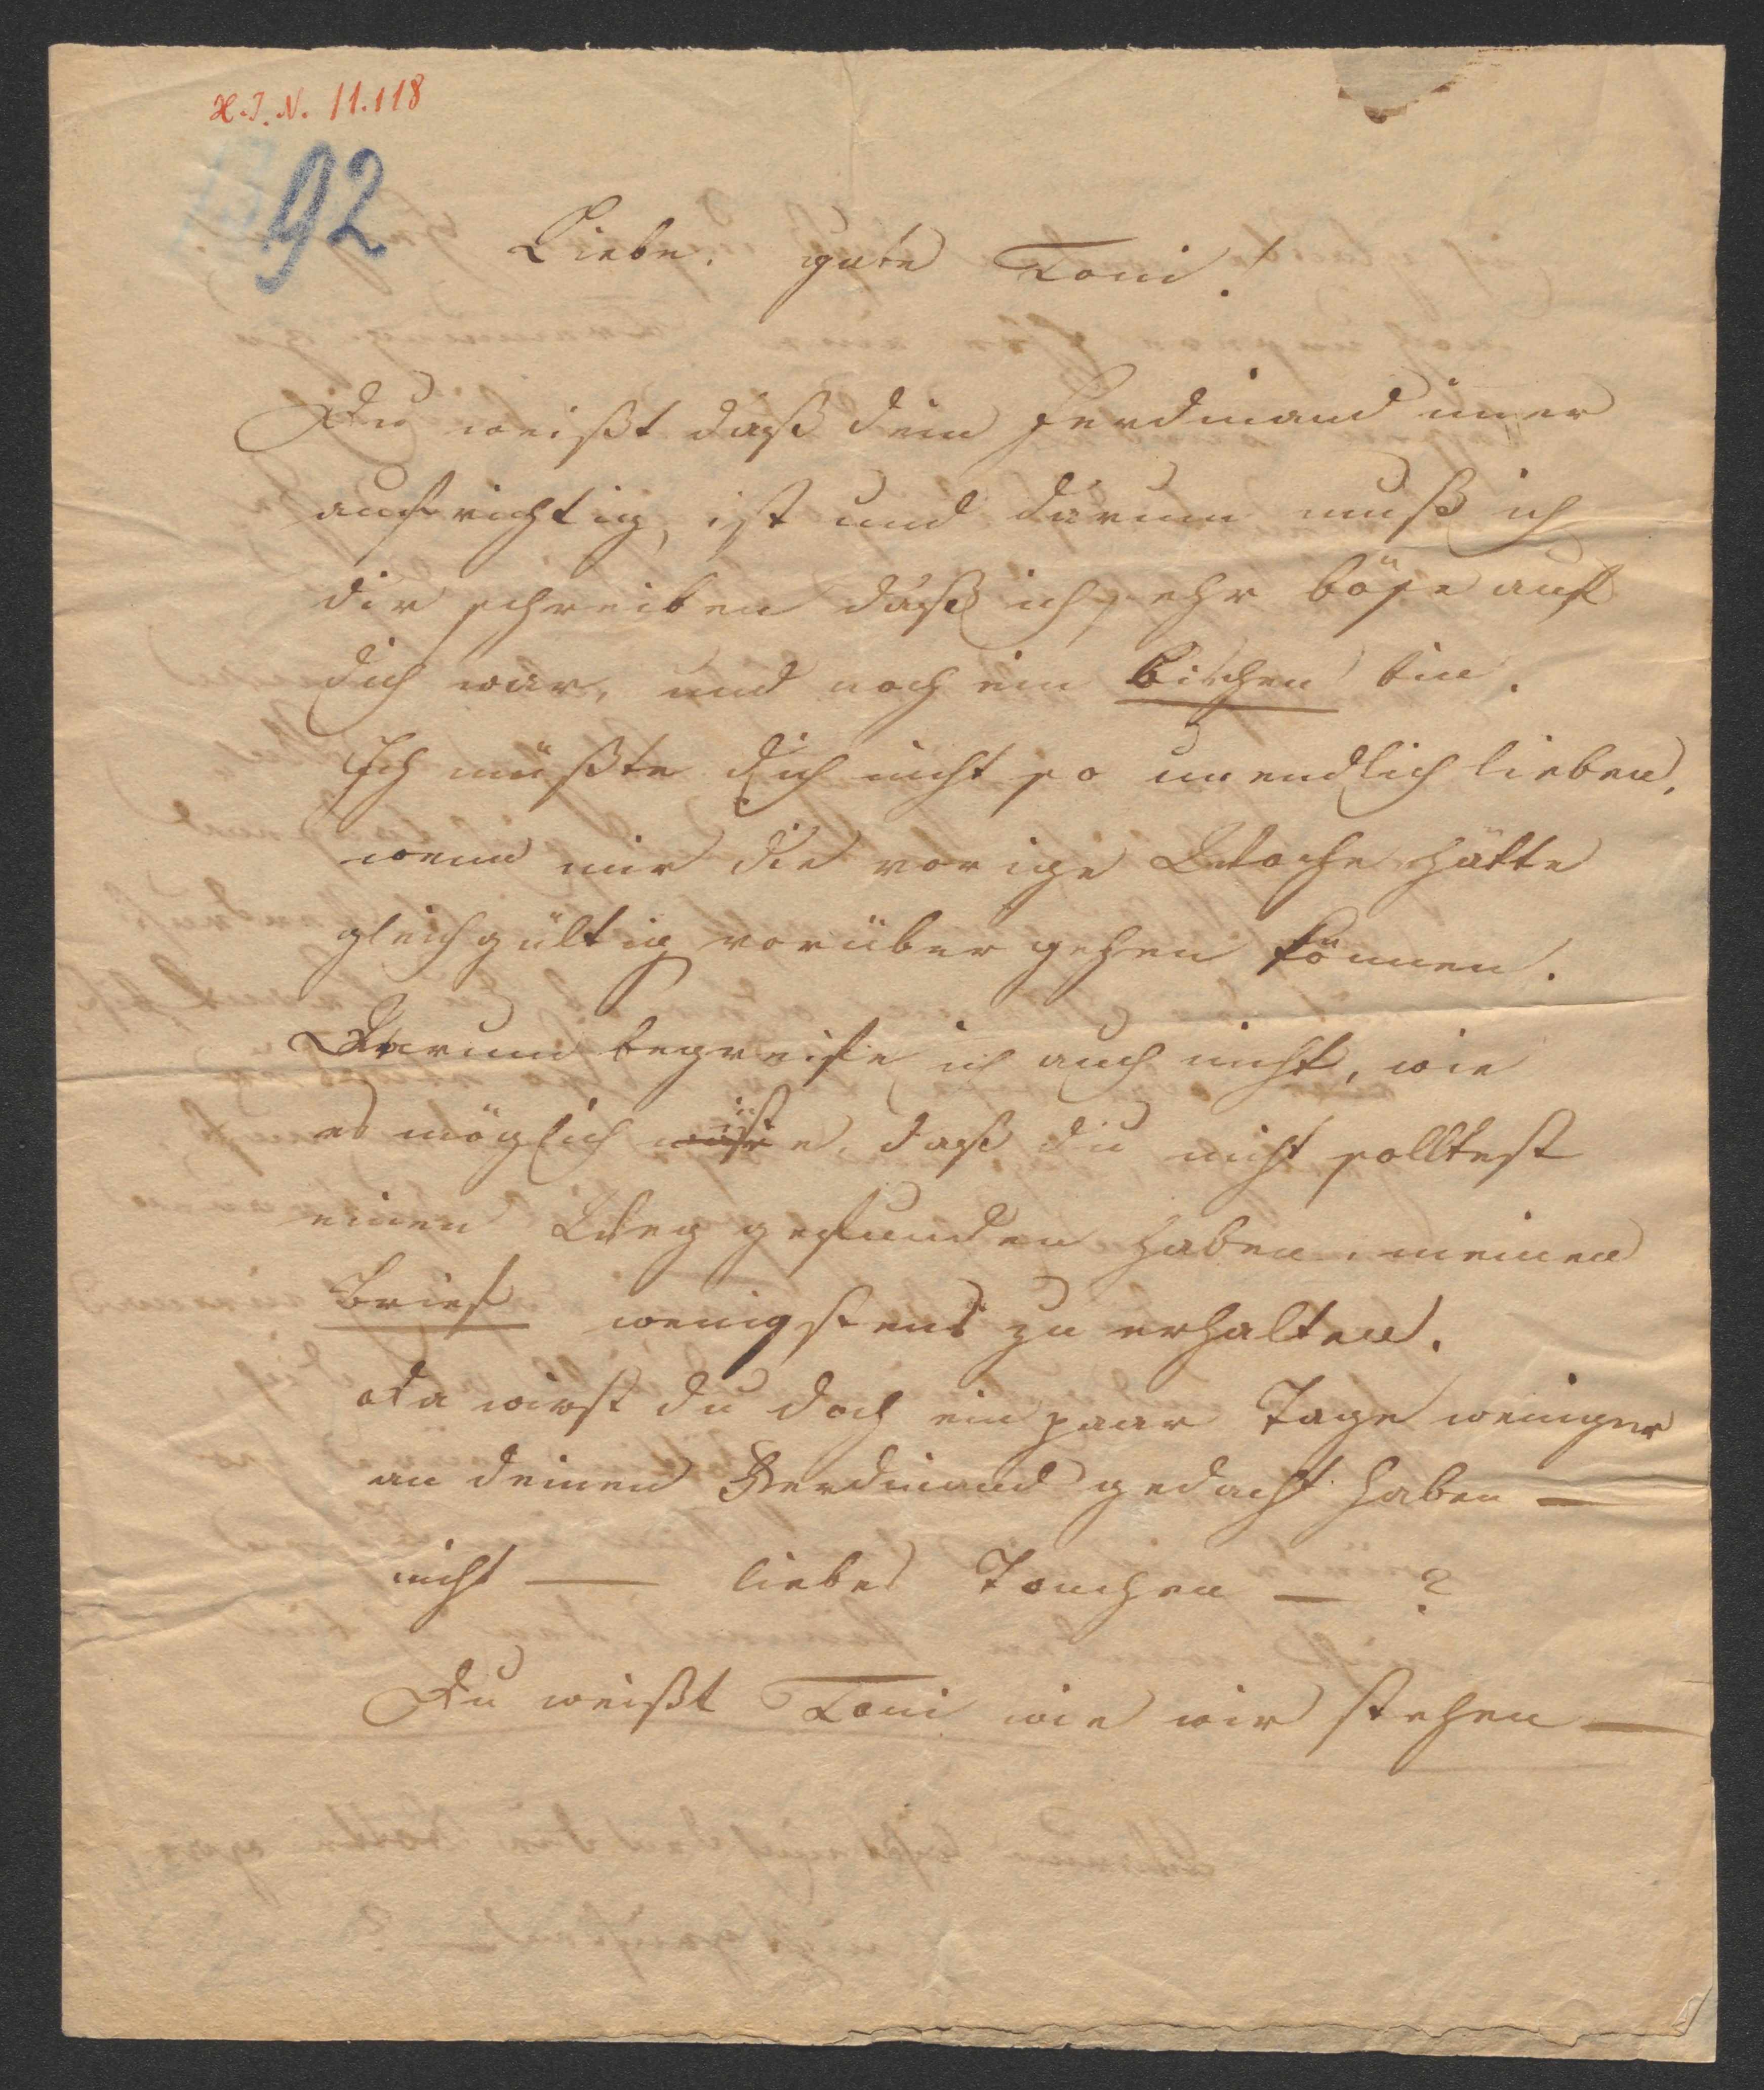 H.I.N. 11.118
92
Liebe, gute Toni!
Du weißt daß dein Ferdinand im̄er
aufrichtig, ist und darum muß ich
dir schreiben daß ich sehr böse auf
dich war, und noch ein bischen bin.
Ich müßte dich nicht so unendlich lieben,
wenn mir die vorige Woche hätte
gleichgültig vorüber gehen können.
Darum begreife ich auch nicht, wie
es möglich ist, daß du nicht solltest
einen Weg gefunden haben, meinen
Brief wenigstens zu erhalten.
Da wirst du doch ein paar Tage weniger
an deinen Ferdinand gedacht haben —
nicht — liebes Tonchen — ?
Du weißt Toni wie wir stehen —